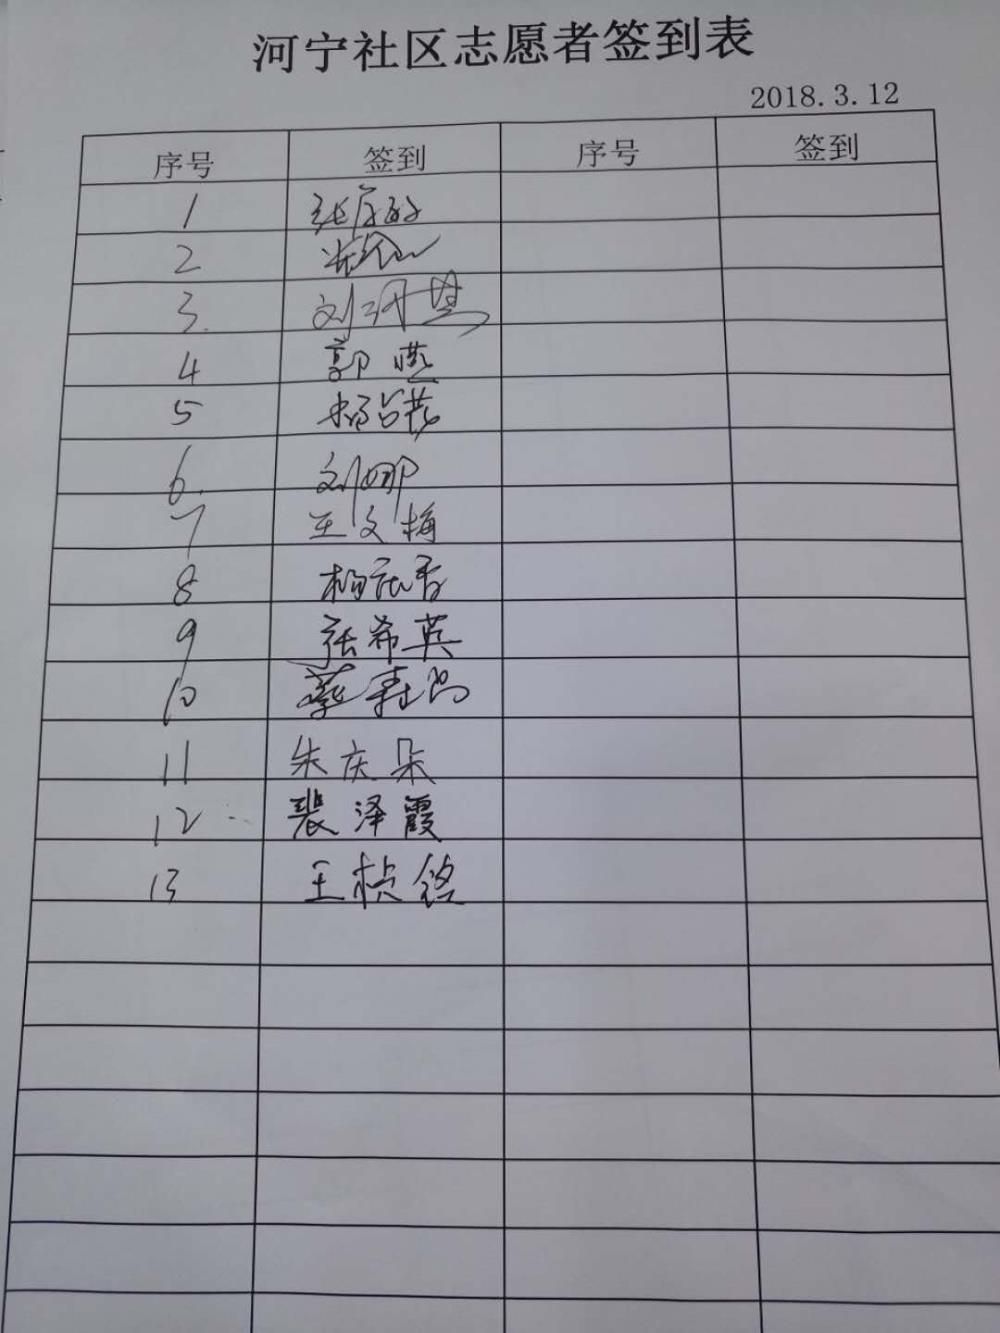 河宁社区志愿者签到表
2018.3.12
序号 签到 序号 签到
1 张
2
3. 刘
4 郭燕
5 杨
6. 刘娜
7 王文梅
8 杨
9 张希英
10 蔡
11 朱庆朵
12 裴泽霞
13 王桢铭